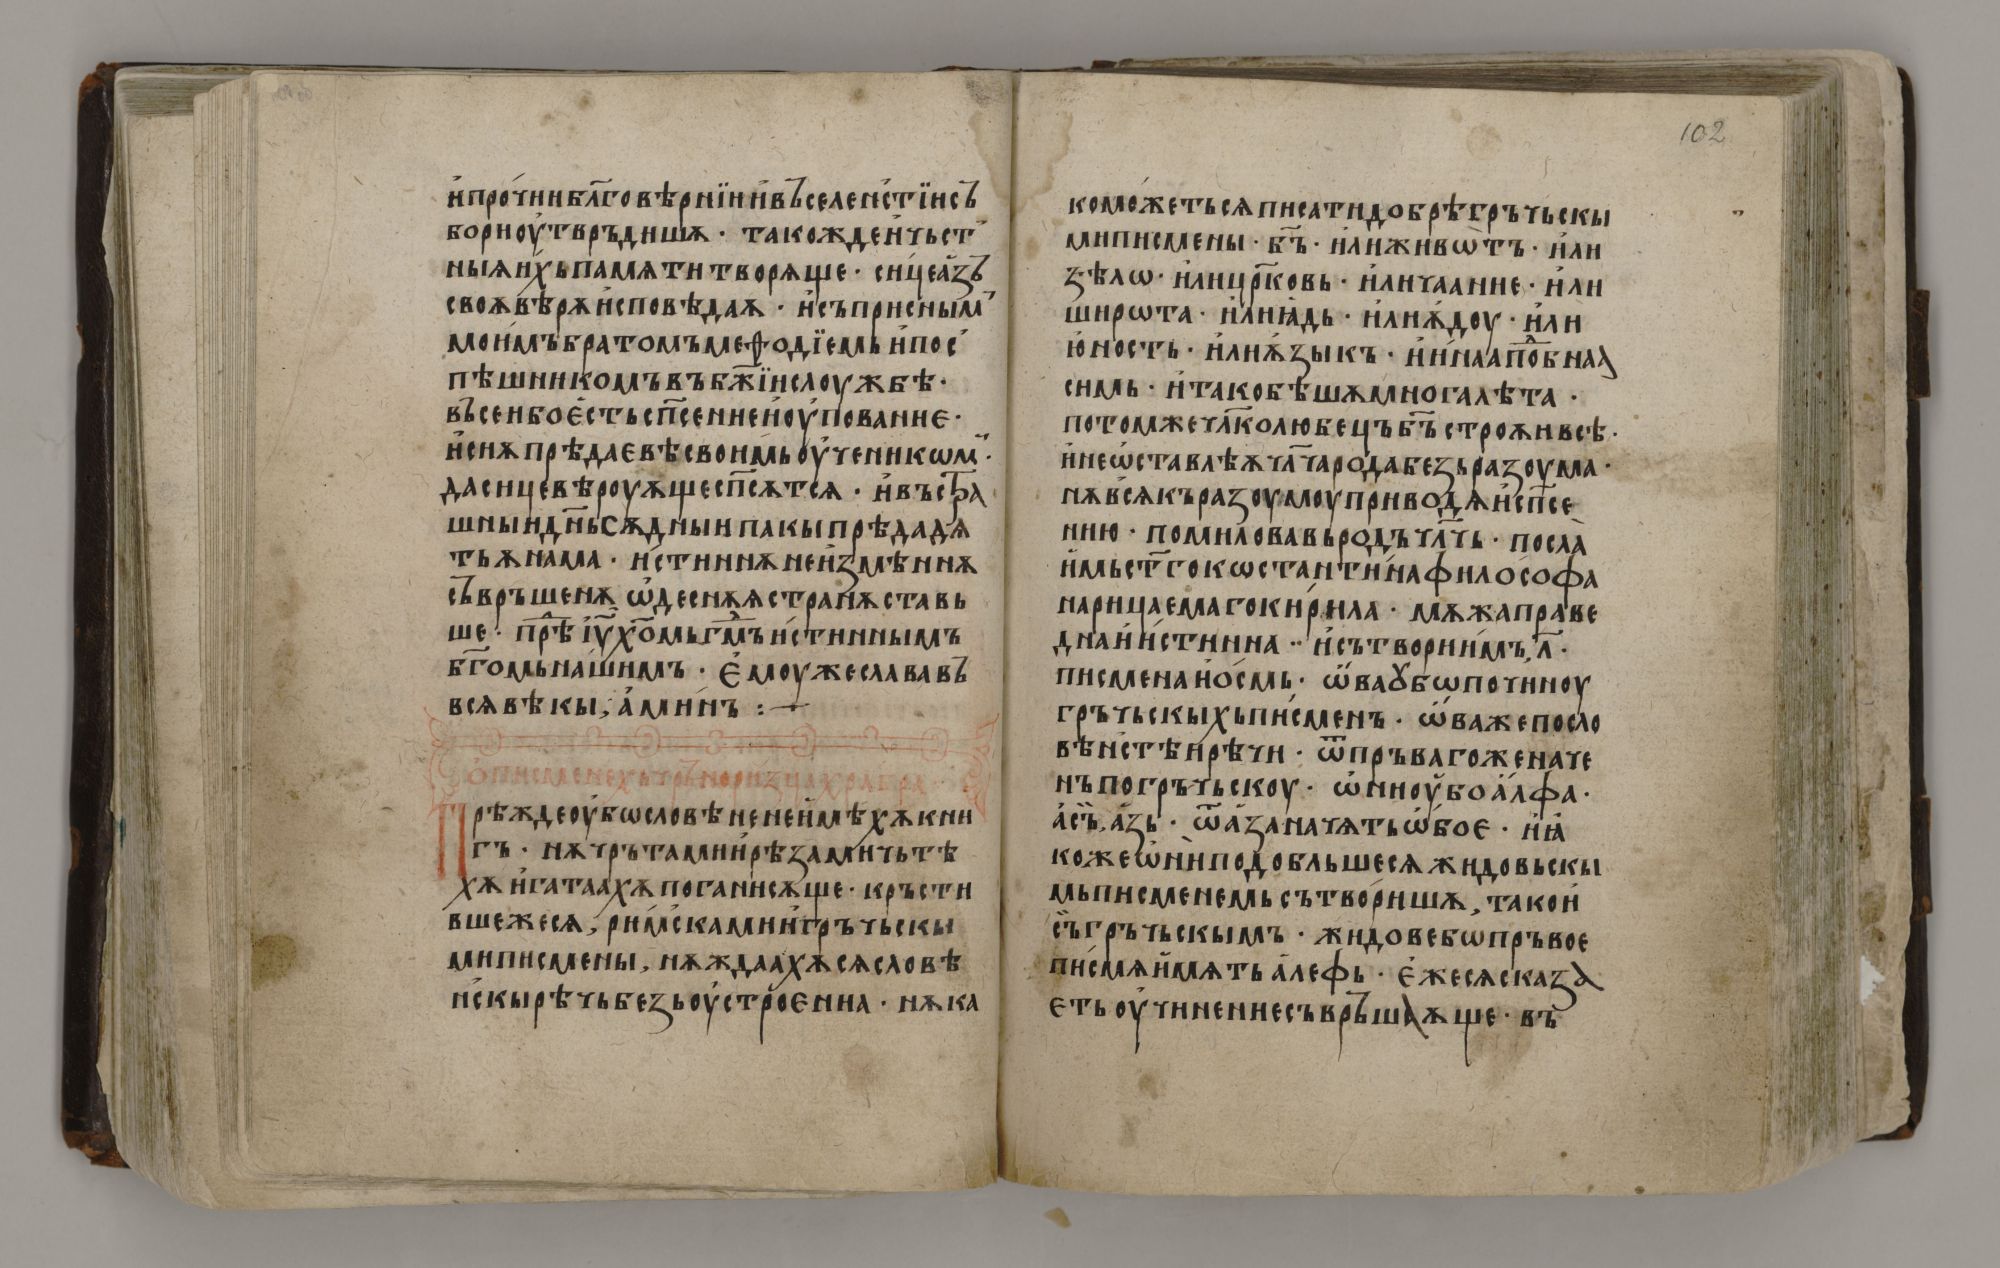 и҆про́чии бл҃говѣрнїи и҆ въселен꙽стїи съ
бори оу҆твръдишѫ · такожде и҆ чьст꙽
ныѧ и҆хь памѧти творѧще · сице а҆зъ
своѫ вѣрѫ и҆сповѣдаѫ · и҆ съ присным꙽
мои҆мъ братомъ меѳодїемь и҆ пос꙽
пѣшникомъ въ бж҃їи слоужбѣ ·
въ сеи бо е҆сть сп҃сение и҆ оу҆пование ·
и҆ сиѫ прѣдаевѣ своимь оу҆ченикѡм꙽ ·
да сице вѣроуѫще сп҃сѫтсѧ · и҆ въ стра
шныи дн҃ь сѫдныи пакы прѣдадѧ
ть ѫ нама · и҆стиннѫ неи҆змѣннѫ
съвръшенѫ ѡ҆деснѫѧ странѫ ставь
ше · прⷣѣ і҆у҃ х҃омь г҃мъ и҆стиннымъ
б҃гомь на́шимъ · е҆моуже слава въ
всѧ вѣкы, а҆минъ :—
о҆ писменехь чръноризца храбра ·
Прѣжде оу҆бѡ словѣне не и҆мѣхѫ кни
гъ · нѫ чрътами и҆ рѣзами чьтѣ
хѫ и҆ гатаахѫ погани сѫще · кръсти
вше же сѧ, ри́мсками и҆ гръчьскы
ми писмены, нѫждаахѫ сѧ словѣ
нскы рѣчь безь оу҆строенна · нѫ ка
ко може́ть сѧ писати добрѣ гръчьскы
ми писмены · б҃ъ · и҆ли животъ · и҆ли
ѕѣлѡ · и҆ли цр҃ковь · и҆ли чаание · и҆ли
широта · и҆ли ꙗ҆дь · и҆ли ѫ҆доу · и҆ли
ю҆ность · и҆ли ѧ҆зыкъ · и҆ и҆наа по́бнаа
симь · и҆ тако бѣшѫ многа лѣта ·
потом же чл҃колюбець б҃ъ строѫи всѣ ·
и҆ не ѡ҆ставлѣѫ чл҃ча рода безь разоума ·
нѫ всѧ къ разоумоу приводѧ и҆ сп҃се
нию · помиловавь родъ чл҃чь · посла
и҆мь ст҃го кѡстанти́на фило́софа
нарицаемаго ки́рила · мѫжа праве
дна и҆ и҆стинна · и҆ сътвори и҆мъ, л҃ ·
писмена и҆ о҆смь · ѡ҆ва ꙋбѡ по чи́ноу
гръчьскыхь писменъ · ѡ҆ва же по сло
вѣнстѣи рѣчи · ѿ пръваго же наче
нъ по гръчьскоу · ѡ҆ни оу҆бо а҆лфа ·
а съ, а҆зь · ѿ аза начѧть ѡ҆бое · и҆ ꙗ҆
коже ѡ҆ни подобльше сѧ жидовьскы
мь писменемь сътво́ришѫ, тако и҆
съ гръчьскымъ · жидове бѡ пръвое
писмѧ и҆мѧть а҆лефь · е҆же сѧ сказа
еть оу҆чинение съвръшаѫще · въ
102